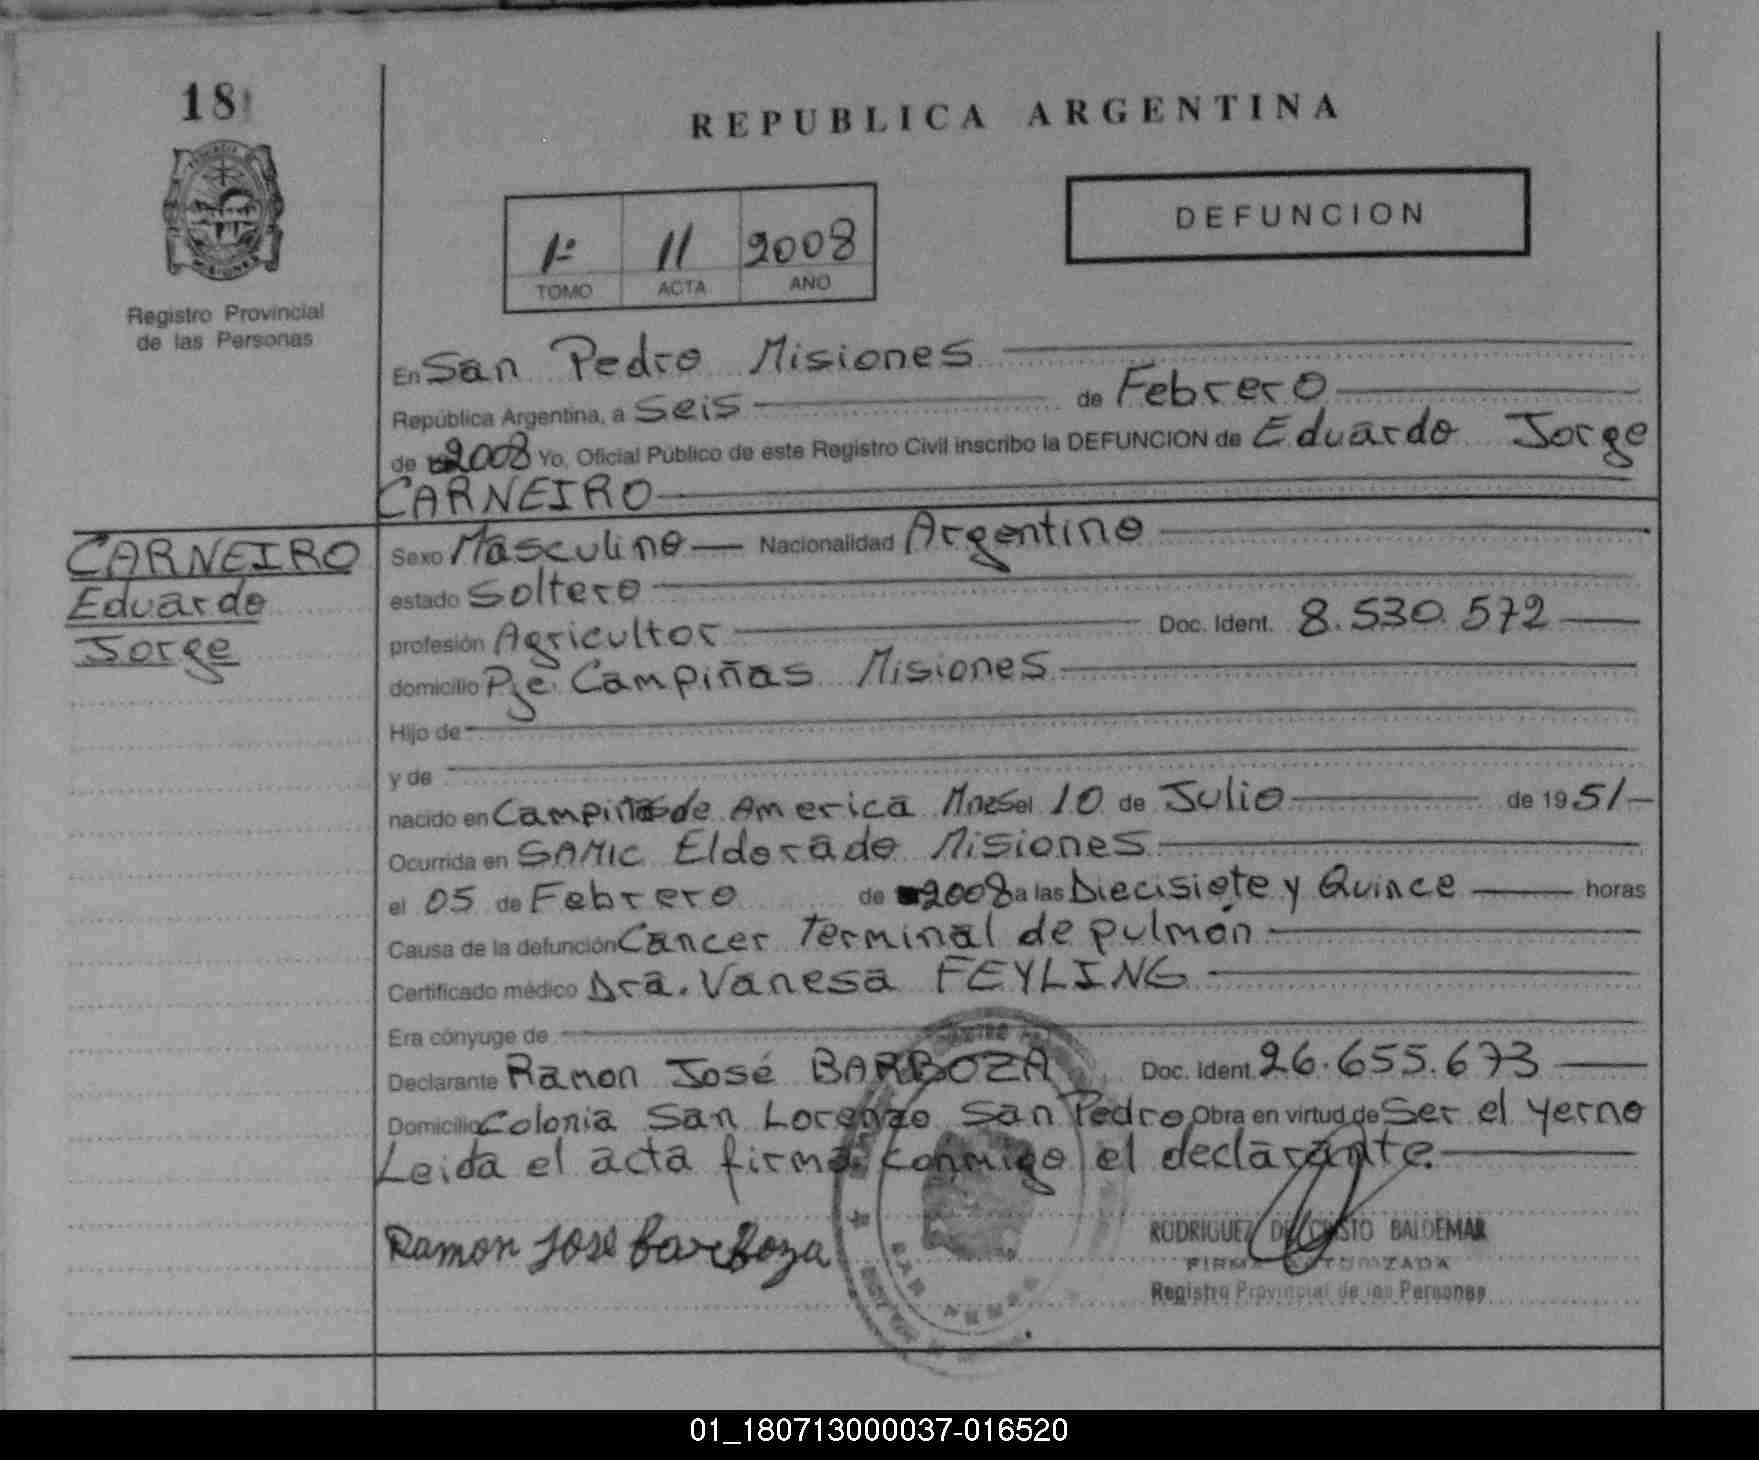 18
REPUBLICA ARGENTINA
MISIONES
Registro Provincial
de las Personas
1º 11 2008
TOMO ACTA AÑO
DEFUNCION
En San Pedro Misiones
República Argentina, a Seis de Febrero
de 2008 Yo, Oficial Público de este Registro Civil inscribo la DEFUNCION de Eduardo Jorge
CARNEIRO
CARNEIRO
Eduardo
Jorge
Sexo Masculino Nacionalidad Argentino
estado Soltero
profesión Agricultor Doc. Ident. 8.530.572
domicilio Pje. Campiñas Misiones
Hijo de
y de
nacido en Campiñas de America Mnes el 10 de Julio de 1951
Ocurrida en SAMIC Eldorado Misiones
el 05 de Febrero de 2008 a las Diecisiete y Quince horas
Causa de la defunción Cancer Terminal de pulmón
Certificado médico Dra. Vanesa FEYLING
Era cónyuge de
Declarante Ramon José BARBOZA Doc. Ident. 26.655.673
Domicilio Colonia San Lorenzo San Pedro Obra en virtud de Ser el yerno
Leida el acta firma conmigo el declarante.
Ramon José Barboza
RODRIGUEZ DEL CRISTO BALDEMAR
FIRMA AUTORIZADA
Registro Provincial de las Personas
SAN PEDRO
01_180713000037-016520